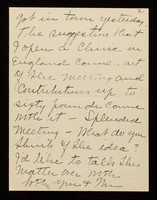 2.
got in town yesterday
The suggestion that
I open a Clinic in
England came out
of the meeting and
Contributions up to
sixty pounds came
with it — Splendid
Meeting — What do you
think of the idea?
I'd like to talk this
matter over with
both you &